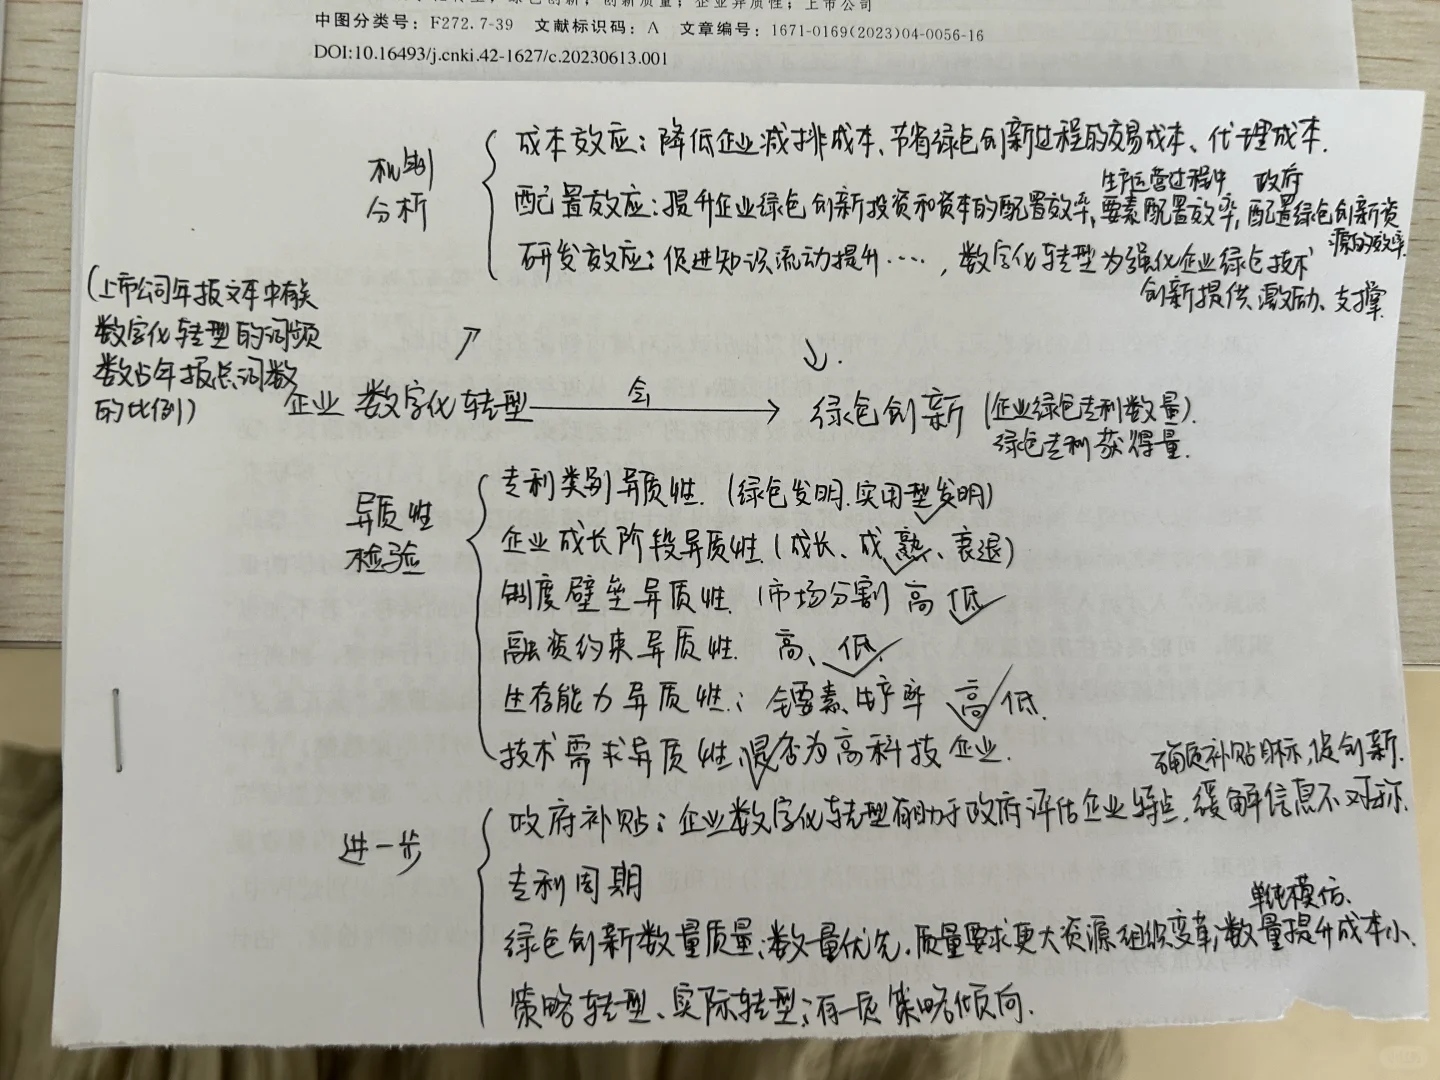 绿色创新；创新质量；企业异质性；上市公司
中图分类号：F272.7-39 文献标识码：A 文章编号：1671-0169(2023)04-0056-16
DOI:10.16493/j.cnki.42-1627/c.20230613.001
机制
分析
成本效应：降低企业减排成本、节省绿色创新过程的交易成本、代理成本.
生产运营过程中 政府
配置效应：提升企业绿色创新投资和资本的配置效率,要素配置效率,配置绿色创新资
源的效率.
研发效应：促进知识流动提升····，数字化转型为强化企业绿色技术
创新提供激励、支撑.
(上市公司年报文本中有关
数字化转型的词频
数占年报总词数
的比例)
企业数字化转型 → 绿色创新 (企业绿色专利数量).
绿色专利获得量.
异质性
检验
专利类别异质性. (绿色发明.实用型发明)
企业成长阶段异质性 (成长、成熟、衰退)
制度壁垒异质性. (市场分割 高 低
融资约束异质性. 高、低.
生存能力异质性.：全要素生产率 高 低.
技术需求异质性.是否为高科技企业.
进一步
补贴目标,促创新.
政府补贴：企业数字化转型有助于政府评估企业特点,缓解信息不对称.
专利周期
单纯模仿.
绿色创新数量质量：数量优先.质量要求更大资源组织变革;数量提升成本小.
策略转型、实际转型：存一定策略倾向.